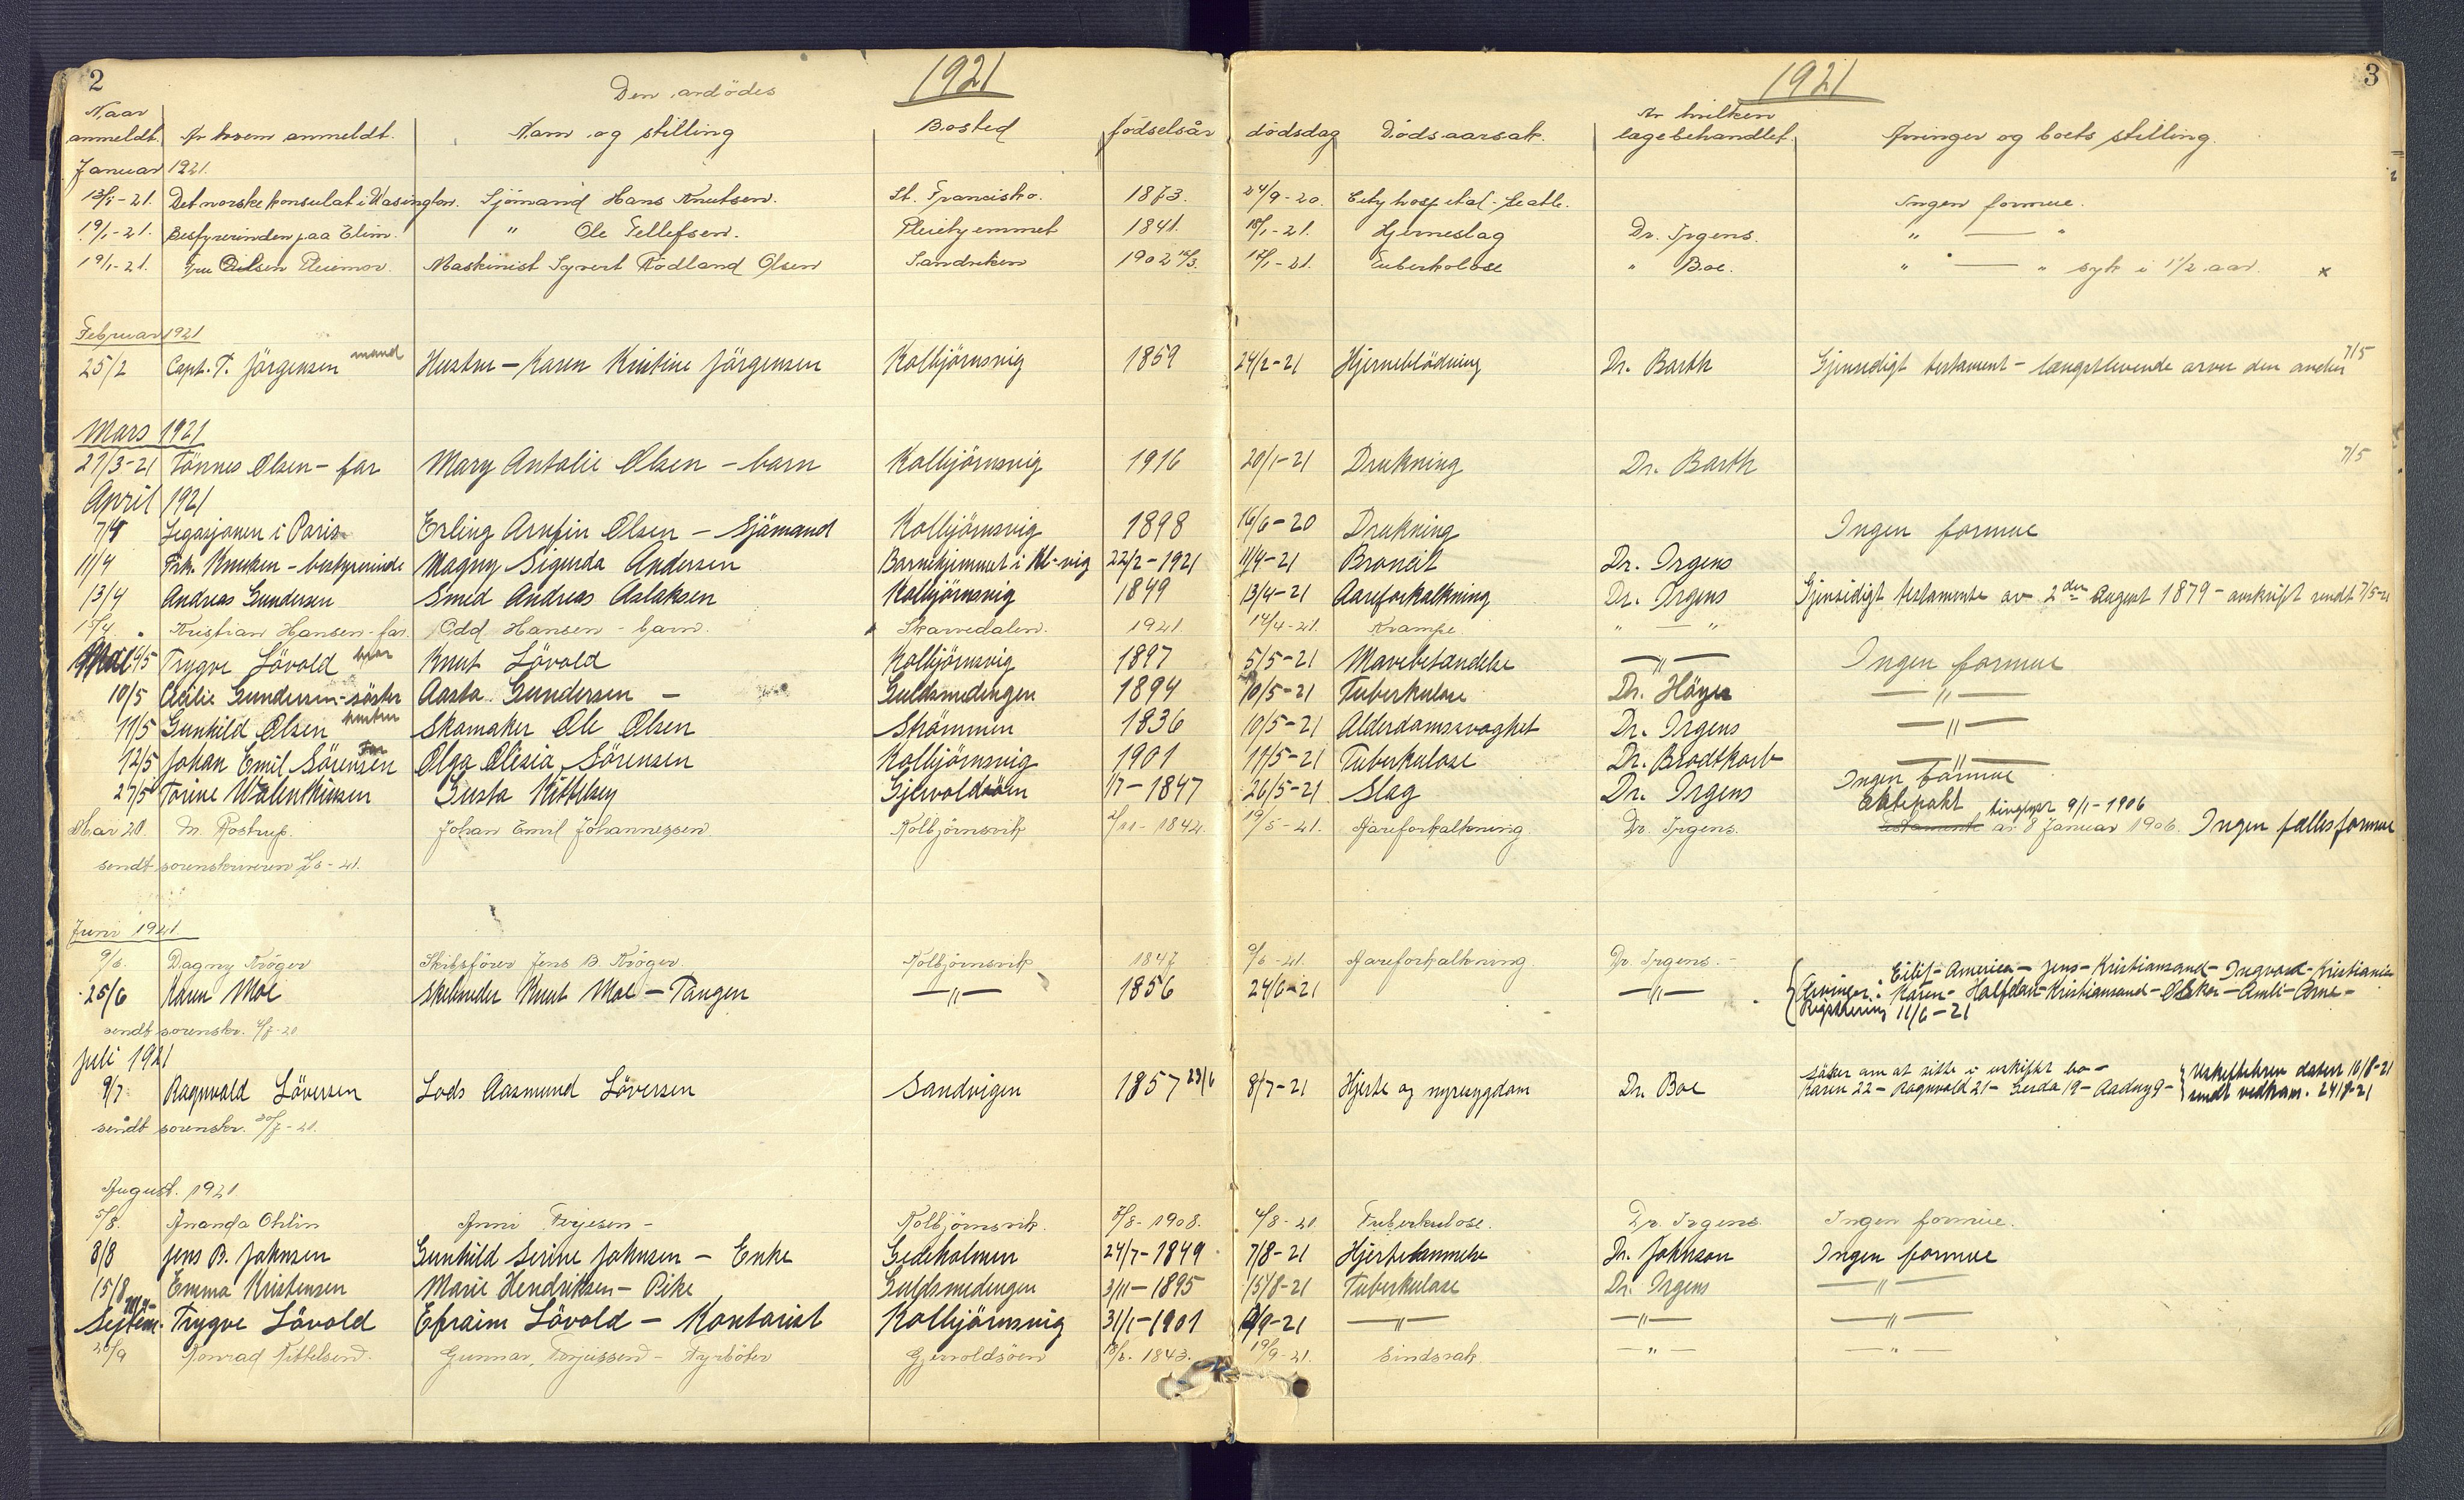 2
Den avdödes
1921
Naar anmeldt. Av hvem anmeldt. Navn og stilling Bosted födselsår
1921
3
dödsdag Dödsaarsak. Av hvilken læge behandlet. Arvinger og boets stilling.
Januar 1921.
13/1-21. Det norske konsulat i Wasington. Sjömand Hans Knutsen. St. Francisko. 1873. 24/9-20. City hospital-Seatle. Ingen formue.
19/1-21. Bestyrerinden paa Elim. " Ole Tellefsen. Pleiehjemmet 1841. 18/1-21. Hjerneslag Dr. Irgens. " — "
19/1-21. Fru Pleiemor. Maskinist Syvert Rödland Olsen Sandviken 1902 Tuberkolose " Boe. " — " syk i 1 1/2 aar. x
Februar 1921
25/2 Capt. T. Jörgensen mand Hustru - Karen Kristine Jörgensen Kolbjörnsvig 1859 24/2-21 Hjerneblödning Dr. Barth Gjensidigt testament - længstlevende arver den anden 7/5
Mars 1921
21/3-21 Tönnes Olsen - far Mary Antalie Olsen - barn Kolbjörnsvig 1916 20/1-21 Drukning Dr. Barth 7/5
April 1921
7/4 Legasjonen i Paris Erling Arnfin Olsen - Sjömand Kolbjörnsvig 1898 16/6-20 Drukning Ingen formue
11/4 Frk. Knutsen - bestyrerinde Magny Sigurda Andersen Barnehjemmet i Kl-vig 22/2-1921 11/4-21 Broncit Dr. Irgens
13/4 Andreas Gundersen Smed Andreas Aslaksen Kolbjörnsvig 1849 13/4-21 Aareforkalkning Dr. Irgens Gjensidigt testamente av 2den August 1879 - avskrift sendt 7/5-21
15/4. Kristian Hansen - far. Odd Hansen - barn. Skarvedalen. 1921 14/4-21. Krampe. " — "
Mai 6/5 Trygve Lövold bror Knut Lövold Kolbjörnsvig 1897 5/5-21 Mavebetændelse — " — Ingen formue
10/5 Cecilie Gundersen - söster Aasta Gundersen - Guldsmedengen 1894 10/5-21 Tuberkulose Dr. Höyer — " —
11/5 Gunhild Olsen hustru Skomaker Ole Olsen Strömmen 1836 10/5-21 Alderdomssvaghet Dr. Irgens — " —
12/5 Johan Emil Sörensen Far Olga Olisia Sörensen Kolbjörnsvig 1901 11/5-21 Tuberkulose Dr. Brodtkorb — " —
27/5 Torine Walentinsen Gusta Kittelsen Gjervoldsöen 1/7-1847 26/5-21 Slag Dr. Irgens Ingen formue
Mai 20. M. Rostrup. Johan Emil Johannessen Kolbjörnsvik 2/11-1842. 19/5-21. Aareforkalkning. Dr. Irgens. Ektepakt tinglyst 9/1-1906
testamente av 8 Januar 1906. Ingen fællesformue
sendt sorenskriveren
Juni 1921.
9/6. Dagny Kröger Skibsförer Jens B. Kröger. Kolbjörnsvik 1847 9/6-21. Aareforkalkning Dr. Irgens. -
25/6 Karen Moe Skibsreder Knut Moe - Tangen — " — 1856 24/6-21 — " — Arvinger: Eilif - America - Jens - Kristiansand - Ingvald - Kristiania
Karen - Halfdan - Kristiansand - Oskar - Amli - Arne -
Registrering 11/6-21
sendt sorenskr. 4/7-20
Juli 1921
9/7 Ragnvald Löversen Lods Aasmund Löversen Sandvigen 1857 23/6 8/7-21 Hjerte og nyresygdom Dr. Boe söker om at sitte i uskiftet bo -
Karen 22 - Ragnvald 21 - Gerda 19 - Aadny 9 - Uskiftebrev datert 10/8-21
sendt vedkom. 24/8-21
sendt sorenskr. 30/7-20.
August. 1921
5/8. Ananda Ohlin Anni Terjesen - Kolbjörnsvik. 7/8-1908. 4/8-21 Tuberkulose. Dr. Irgens. Ingen formue.
8/8 Jens B. Johnsen Gunhild Serine Johnsen - Enke Gedeholmen 24/7-1849 7/8-21 Hjertelammelse Dr. Johnson Ingen formue
15/8 Emma Kristensen Marie Hendriksen - Pike Guldsmedengen 3/11-1895 15/8-21 Tuberkulose Dr. Irgens — " —
Septem. Trygve Lövold Efraim Lövold - Kontorist Kolbjörnsvig 31/1-1901 9/9-21 — " — — " — — " —
20/9 Konrad Kittelsen. Gunnar Terjussen - Fyrböter Gjervoldsöen 18/2-1843. 19/9-21. Sindsvak — " — — " —